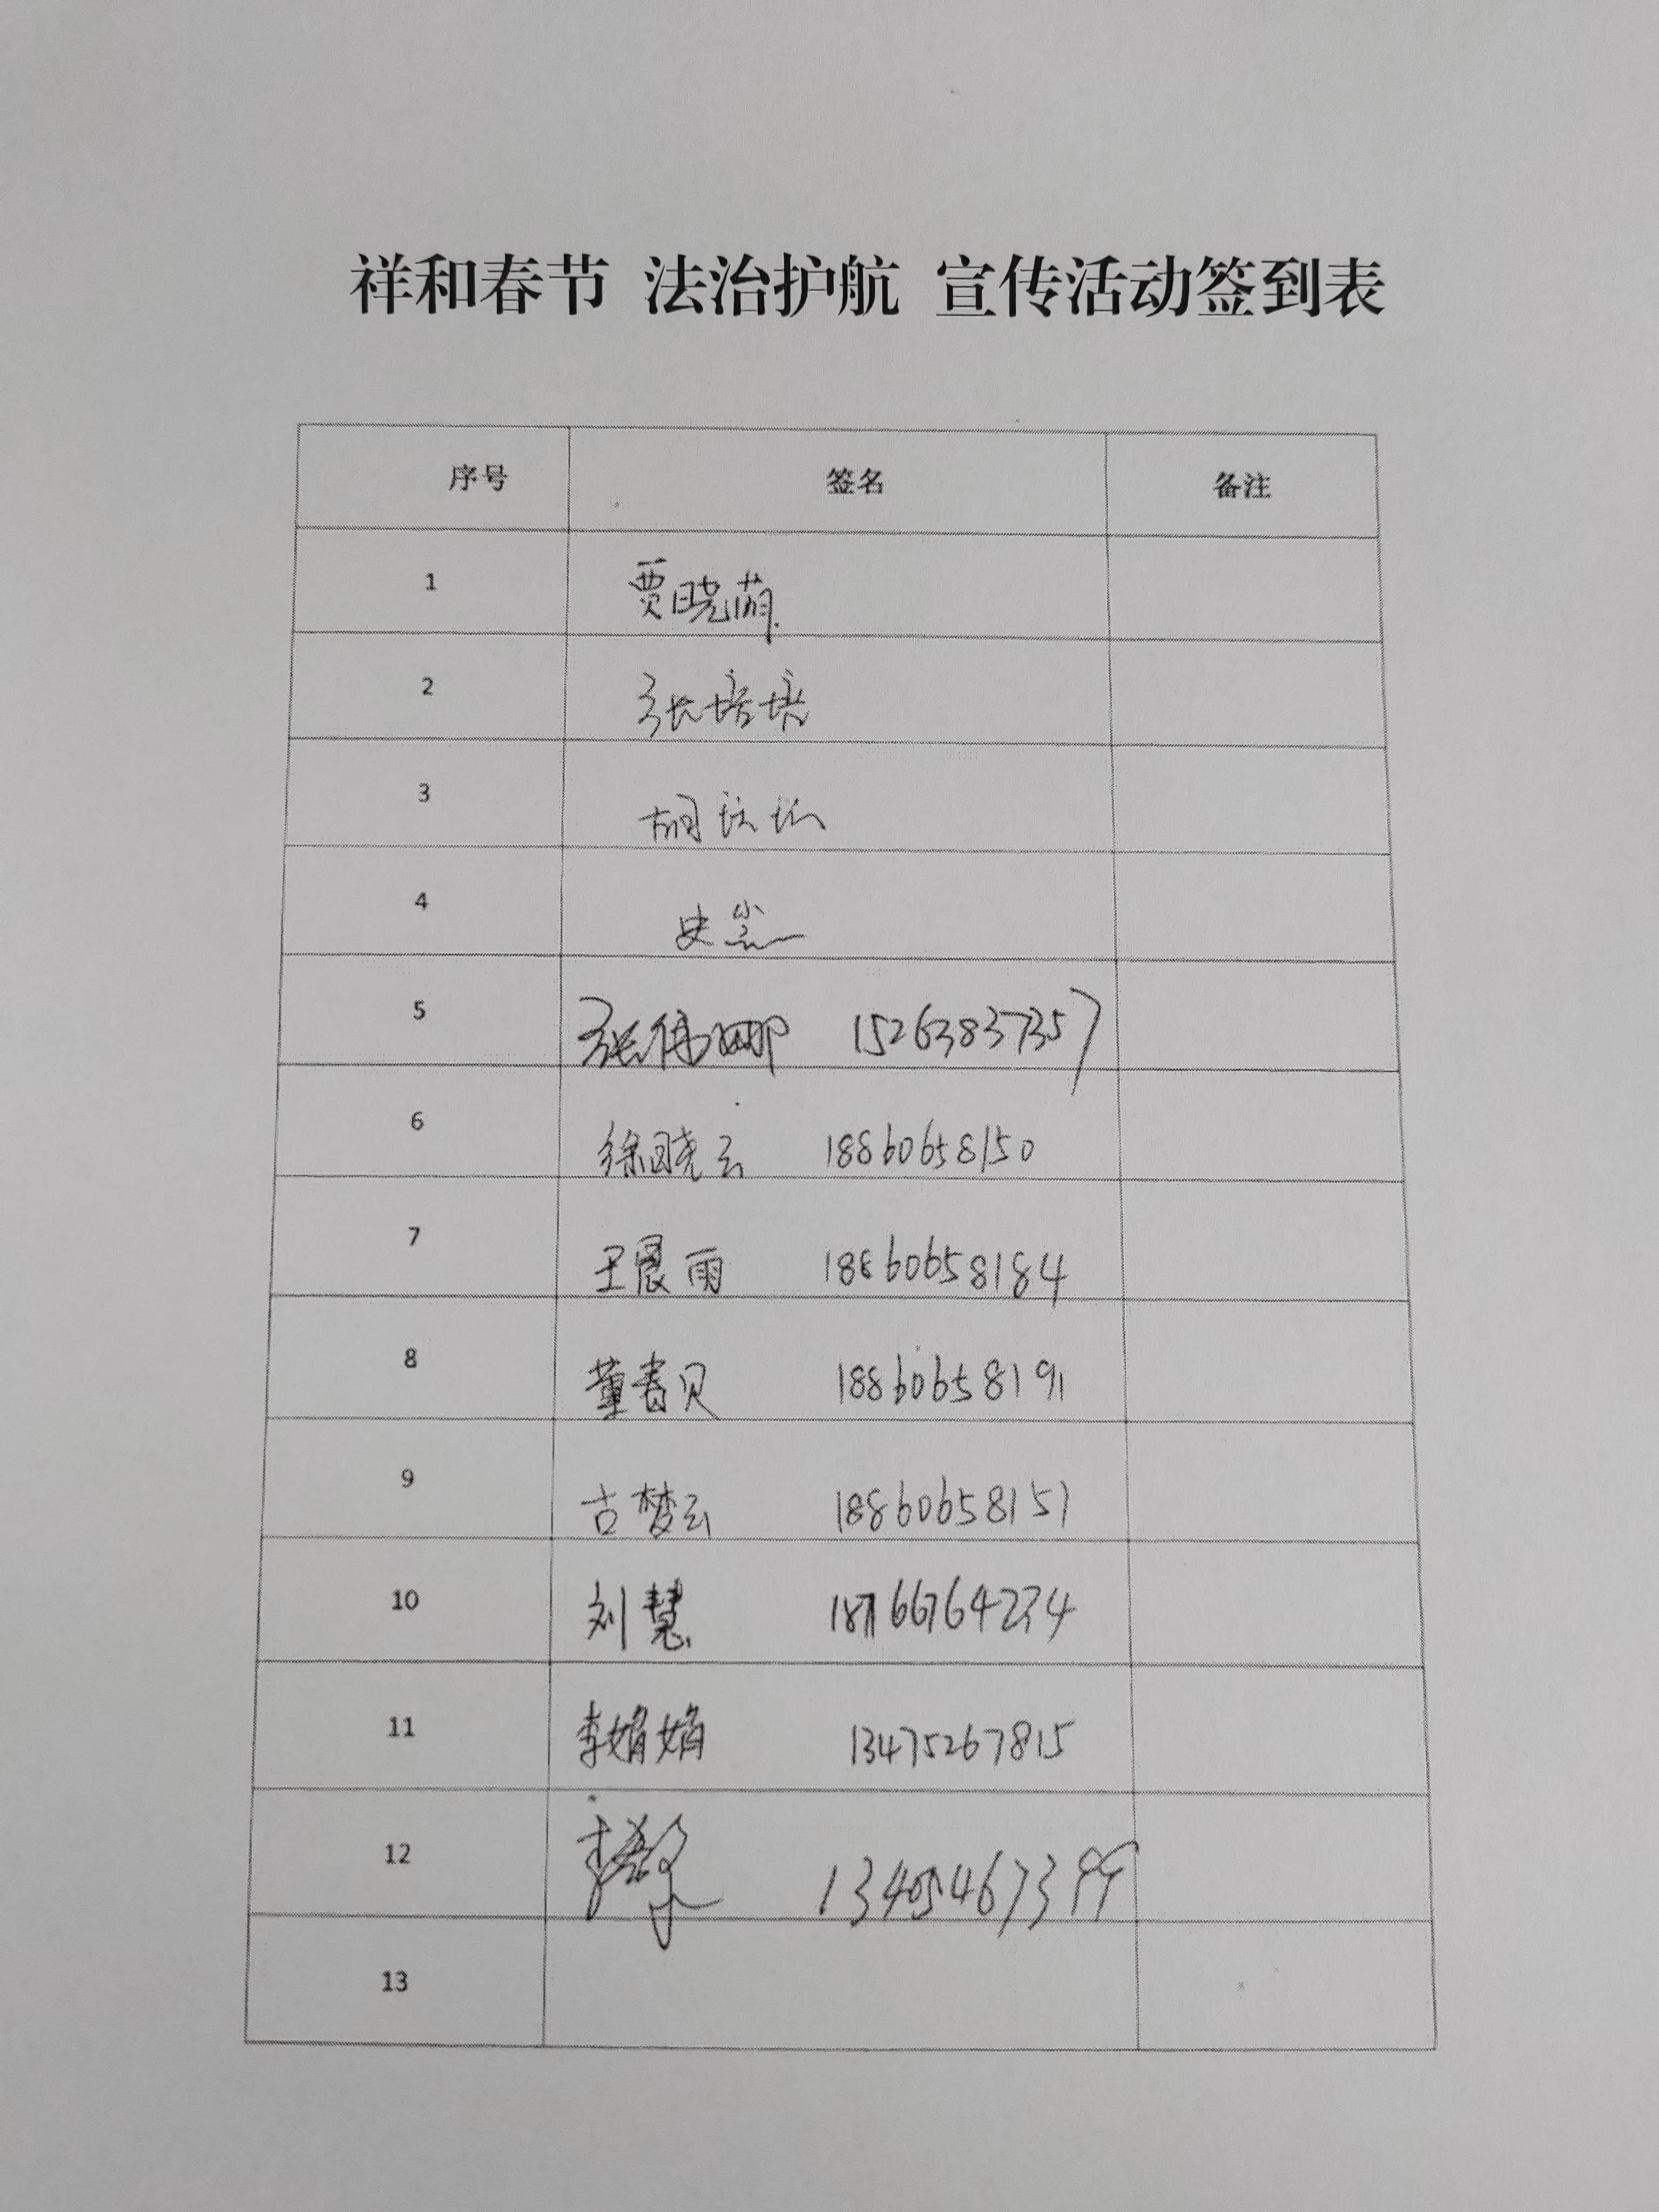 祥和春节 法治护航 宣传活动签到表
序号 签名 备注
1 贾晓萌
2 张培培
3 胡
4 史
5 张伟娜 15263837357
6 徐晓云 18860658150
7 王晨雨 18860658184
8 董春贝 18860658191
9 古梦云 18860658151
10 刘慧
11 李娟娟 13475267815
12 李
13